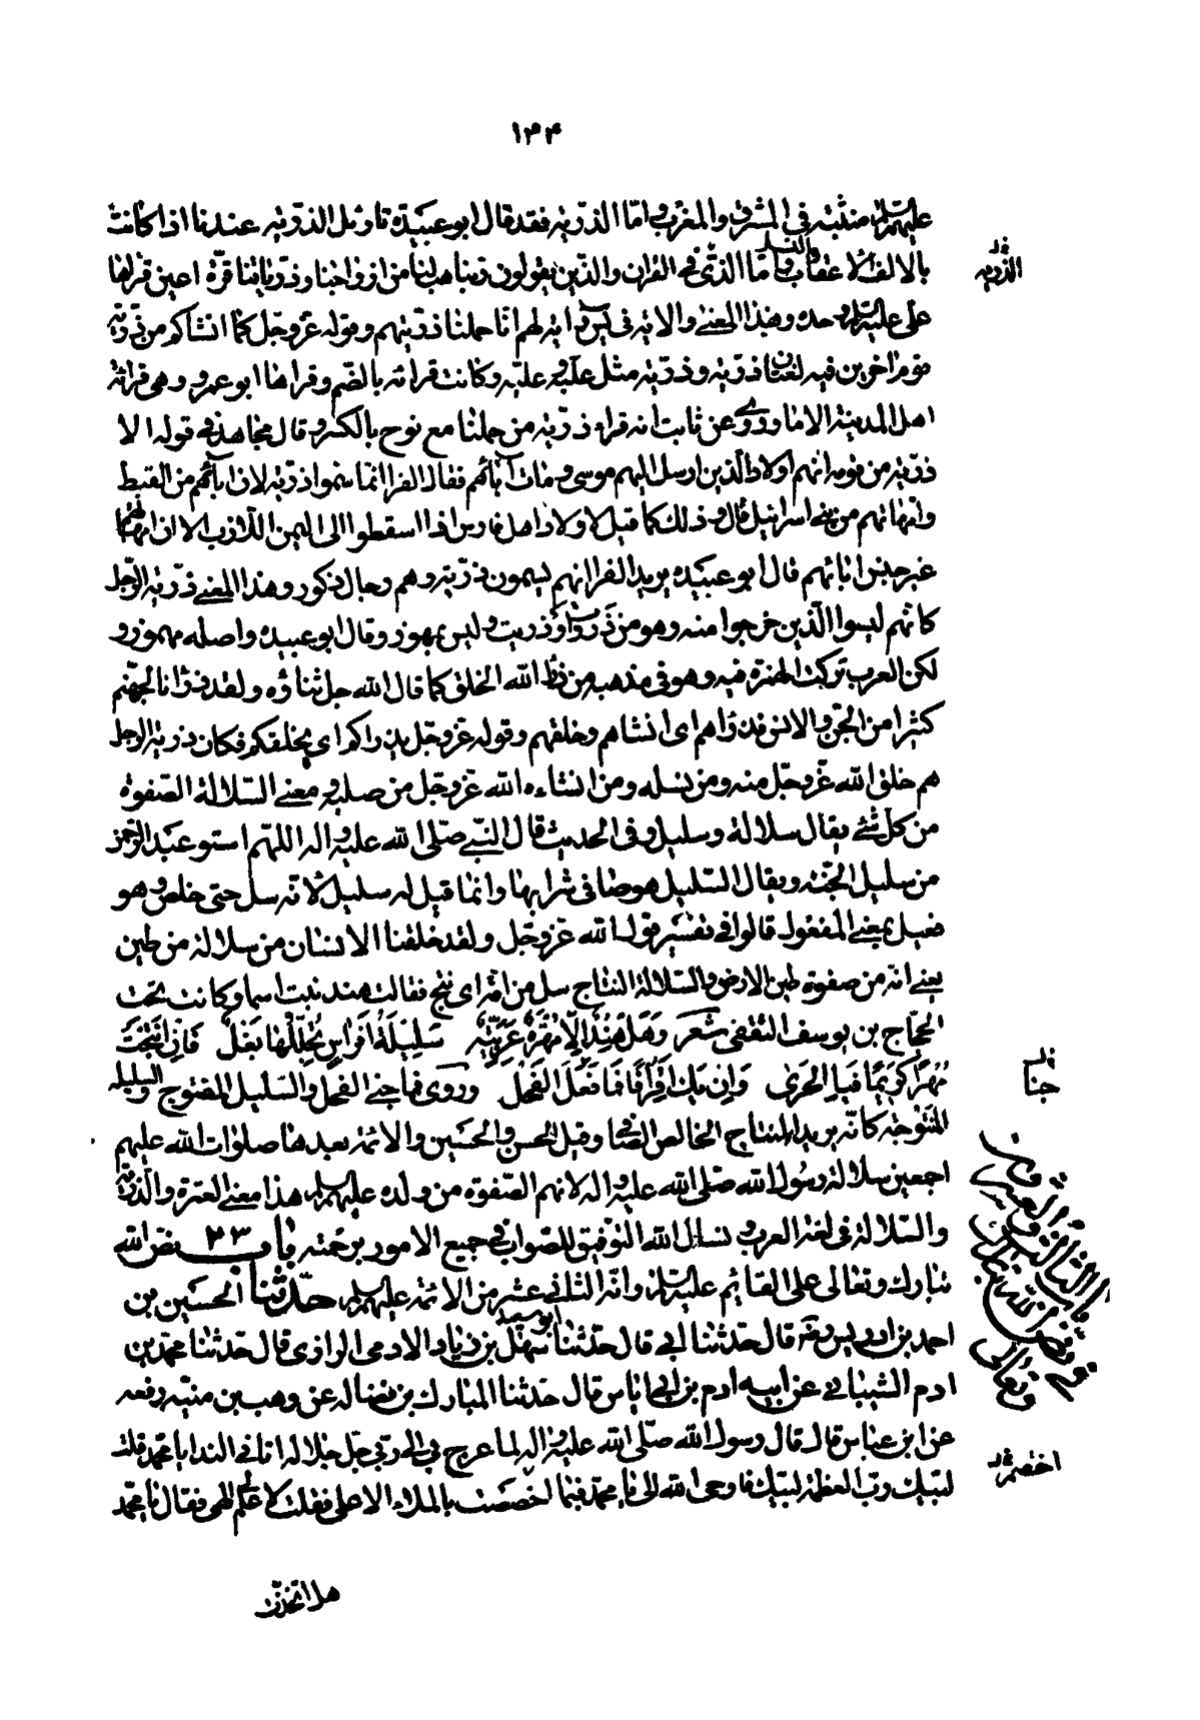 ١٣۴
عليهم السلم منبثة في المشرق والمغرب واما الذرية فقد قال ابو عبيدة تاويل الذرية عندنا اذا كانت
بالالف الاعقاب والنسل واما الذي في القران والذين يقولون ربنا هب لنا من ازواجنا وذرياتنا قرة اعين قراها
علي عليه السلم وحده وبهذا المعنى والاية في يس واية لهم انا حملنا ذريتهم وقوله عز وجل كما انشاكم من ذرية
قوم اخرين فيه لغتان ذرية وذرية مثل علية وعلية وكانت قرائته بالضم وقراها ابو عمرو وهي قرائة
اهل المدينة الا ما روي عن ثابت انه قراء ذرية من حملنا مع نوح بالكسر وقال مجاهد في قوله الا
ذرية من قومه انهم اولاد الذين ارسل اليهم موسى ومات آبائهم فقال الفرا انما سموا ذرية لان ابائهم من القبط
وامهاتهم من بني اسرائيل قال وذلك كما قيل لاولاد اهل فارس اذا اسقطوا الى اليمن الابناء لان امهاتهم
غير جنس ابائهم قال ابو عبيده يريد الفرا انهم يسمون ذرية وهم رجال ذكور وهذا المعنى ذرية الرجل
كانهم ليسوا الذين خرجوا منه وهو من ذروت او ذريت وليس بمهموز وقال ابو عبيده واصله مهموز و
لكن العرب تركت الهمزة فيه وهو في مذهبه من ذرأ الله الخلق كما قال الله جل ثناؤه ولقد ذرانا لجهنم
كثيرا من الجن والانس وذراهم اي انشاهم وخلقهم وقوله عز وجل يذراكم اي يخلقكم فكان ذرية الرجل
هم خلق الله عز وجل منه ومن نسله ومن انشاءه الله عز وجل من صلبه ومعنى السلالة الصفوة
من كل شئ يقال سلالة وسليل وفي الحديث قال النبي صلى الله عليه واله اللهم اسق عبد الرحمن
من سليل الجنة ويقال السليل هو صافي شرابها وانما قيل له سليل لانه سل حتى خلص وهو
فعيل بمعنى المفعول قالوا في تفسير قول الله عز وجل ولقد خلقنا الانسان من سلالة من طين
يعني انه من صفوة طين الارض والسلالة النتاج سل من امه اي نتج فقالت هند بنت اسما وكانت تحت
الحجاج بن يوسف الثقفي شعر وَهَل هِندٌ اِلّا مُهرَةٌ عَرَبيّةٌ سَليلَةُ اَفراسٍ تُجَلِّلُها بَغلُ فَاِن نُتِجَت
مُهراً كَريماً فَبالحَرى وَاِن يَكُ اِقرافاً فَما فَعَلَ الفَحلُ وروي فما جنى الفحل والسليل المنتوج والسليله
المنتوجة كانه يريد النتاج الخالص الصافي وقيل للحسن والحسين والائمة بعدهما صلوات الله عليهم
اجمعين سلالة رسول الله صلى الله عليه واله لانهم الصفوة من ولده عليهم السلم هذا معنى العترة والذرية
والسلالة في لغة العرب ونسال الله التوفيق للصواب في جميع الامور برحمته باب ٢٣ نص الله
تبارك وتعالى على القائم عليه السلم وانه الثاني عشر من الائمة عليهم السلم حدثنا الحسين بن
احمد بن ادريس رضه قال حدثنا ابي قال حدثنا ابو سعيد سهل بن زياد الادمي الرازي قال حدثنا محمد بن
ادم الشيباني عن ابيه ادم بن ابي اياس قال حدثنا المبارك بن فضاله عن وهب بن منبه رفعه
عن ابن عباس قال قال رسول الله صلى الله عليه واله لما عرج بي الى ربي جل جلاله اتاني الندا يا محمد قلت
لبيك رب العظمة لبيك فاوحى الله الي يا محمد فيما اختصمت بالملاء الاعلى فقلت لا علم لي الهي فقال يا محمد
هلا اتخذت
الذرية
جنا
باب الثالث والعشرون
اختصم